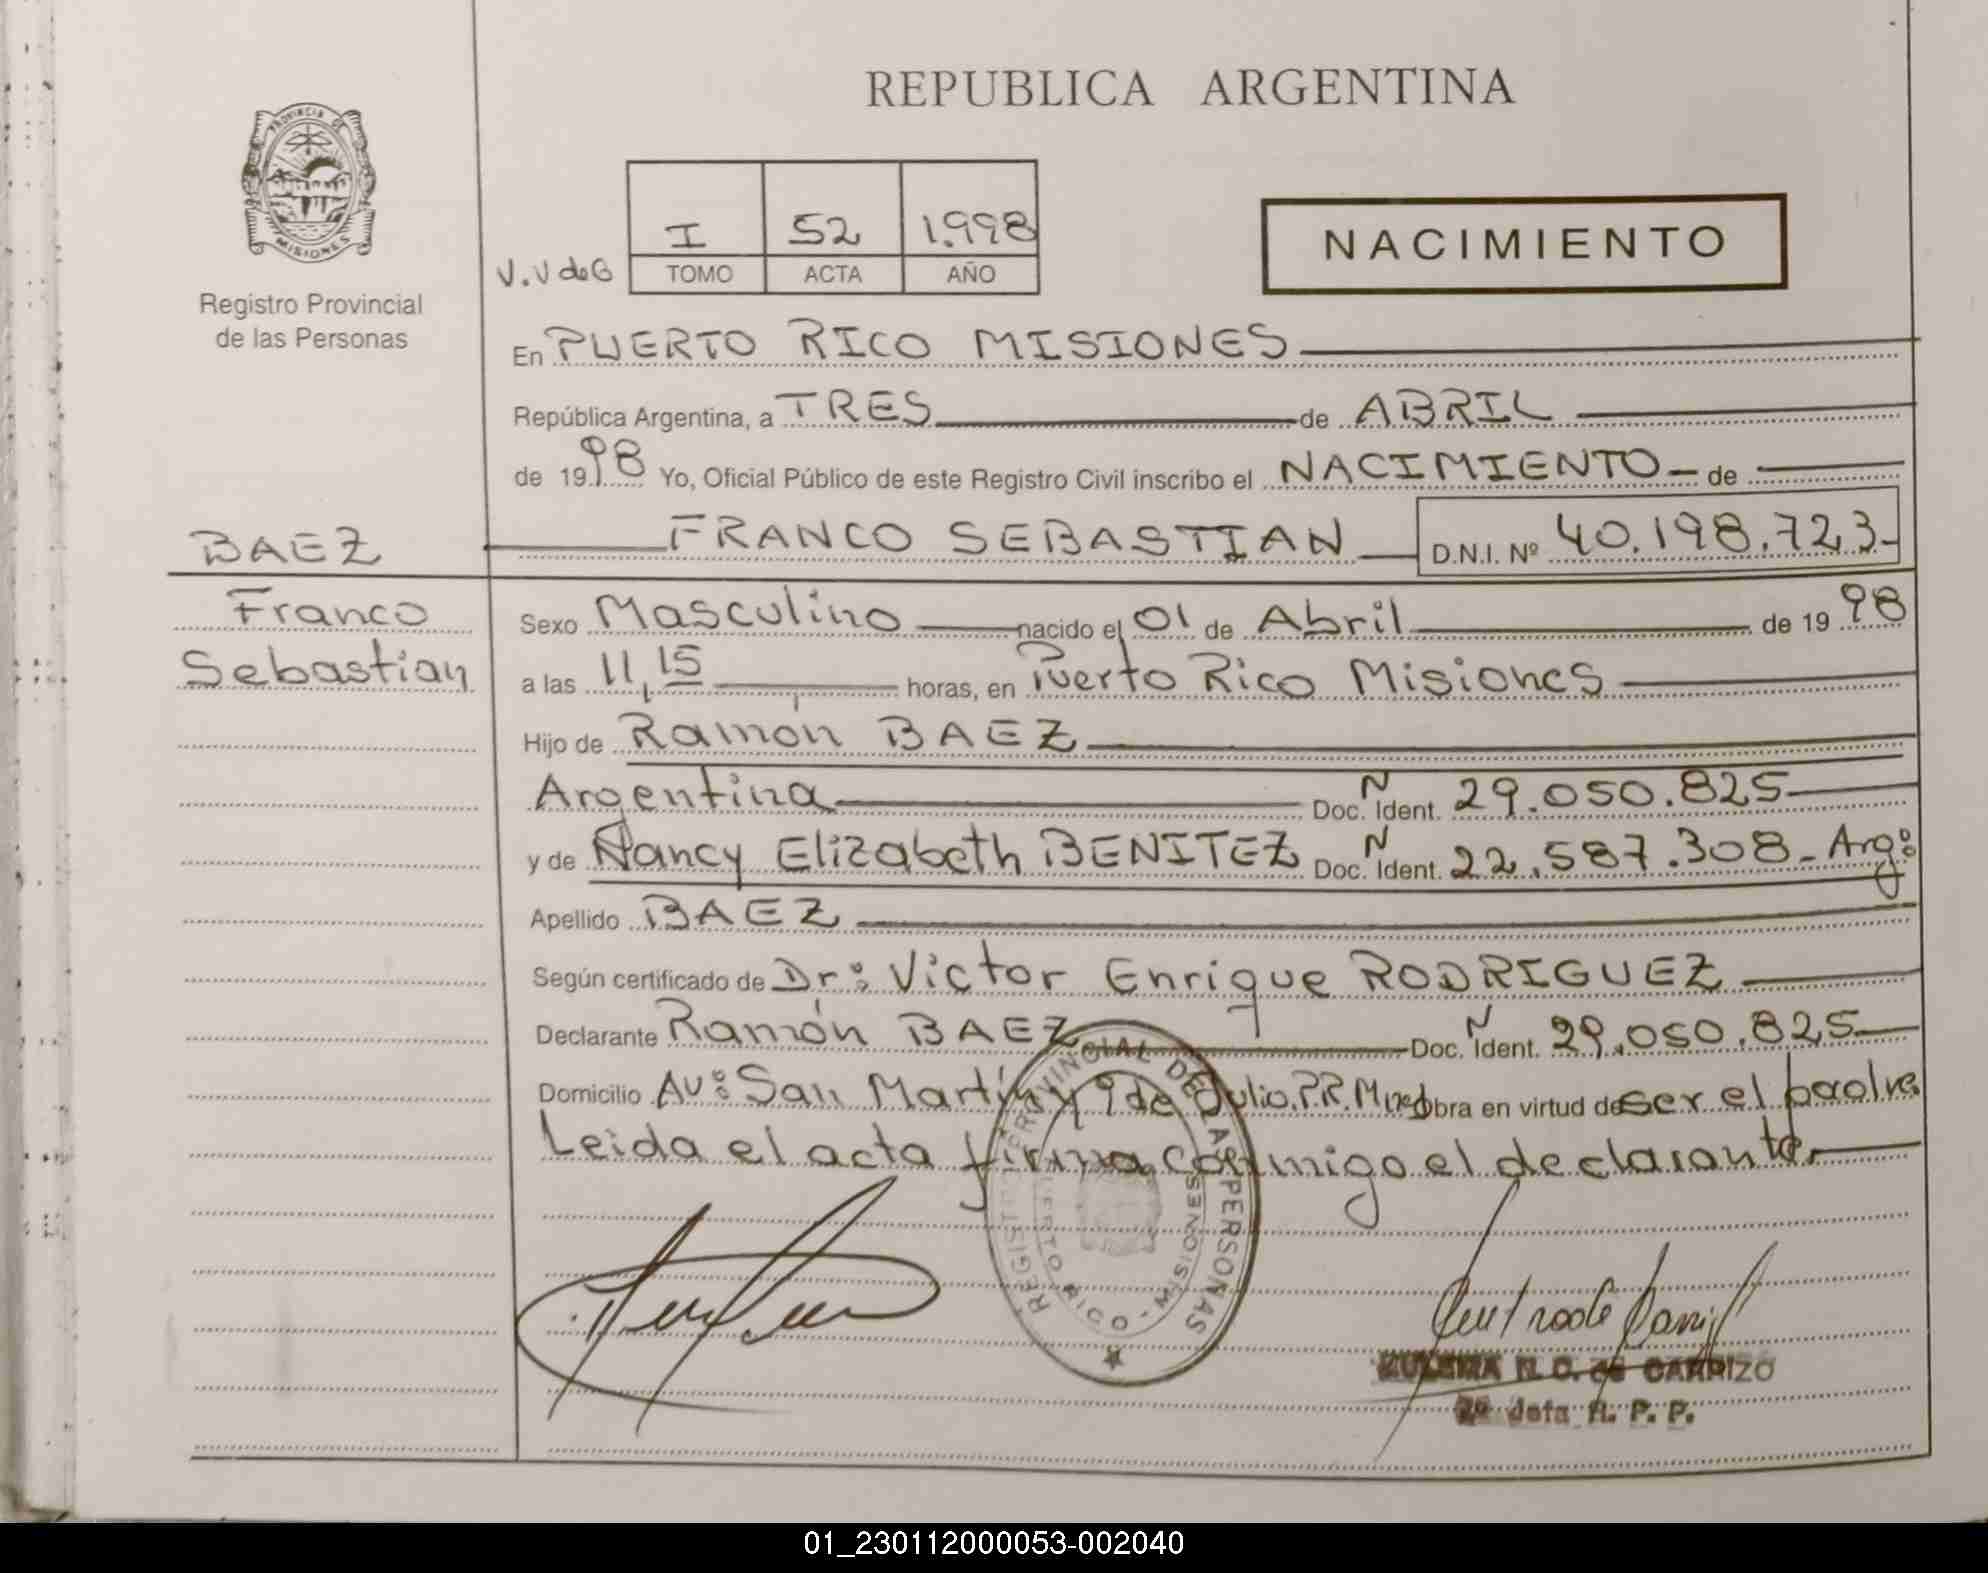 REPUBLICA ARGENTINA
PROVINCIA DE
MISIONES
Registro Provincial
de las Personas
V.V de G
I 52 1.998
TOMO ACTA AÑO
NACIMIENTO
En PUERTO RICO MISIONES
República Argentina, a TRES de ABRIL
de 1998 Yo, Oficial Público de este Registro Civil inscribo el NACIMIENTO de
BAEZ
FRANCO SEBASTIAN D.N.I. Nº 40.198.723
Franco
Sebastian
Sexo Masculino nacido el 01 de Abril de 1998
a las 11,15 horas, en Puerto Rico Misiones
Hijo de Ramón BAEZ
Argentina Doc. Ident. N 29.050.825
y de Nancy Elizabeth BENITEZ Doc. Ident. N 22.587.308 - Arg:
Apellido BAEZ
Según certificado de Dr: Victor Enrique RODRIGUEZ
Declarante Ramón BAEZ Doc. Ident. N 29.050.825
Domicilio Av: San Martín y 9 de Julio. P.R. Mnes Obra en virtud de ser el padre.
Leida el acta firma conmigo el declarante.
REGISTRO PROVINCIAL DE LAS PERSONAS
PUERTO RICO - MISIONES
N. C. de CARRIZO
2º Jefa R. P. P.
01_230112000053-002040